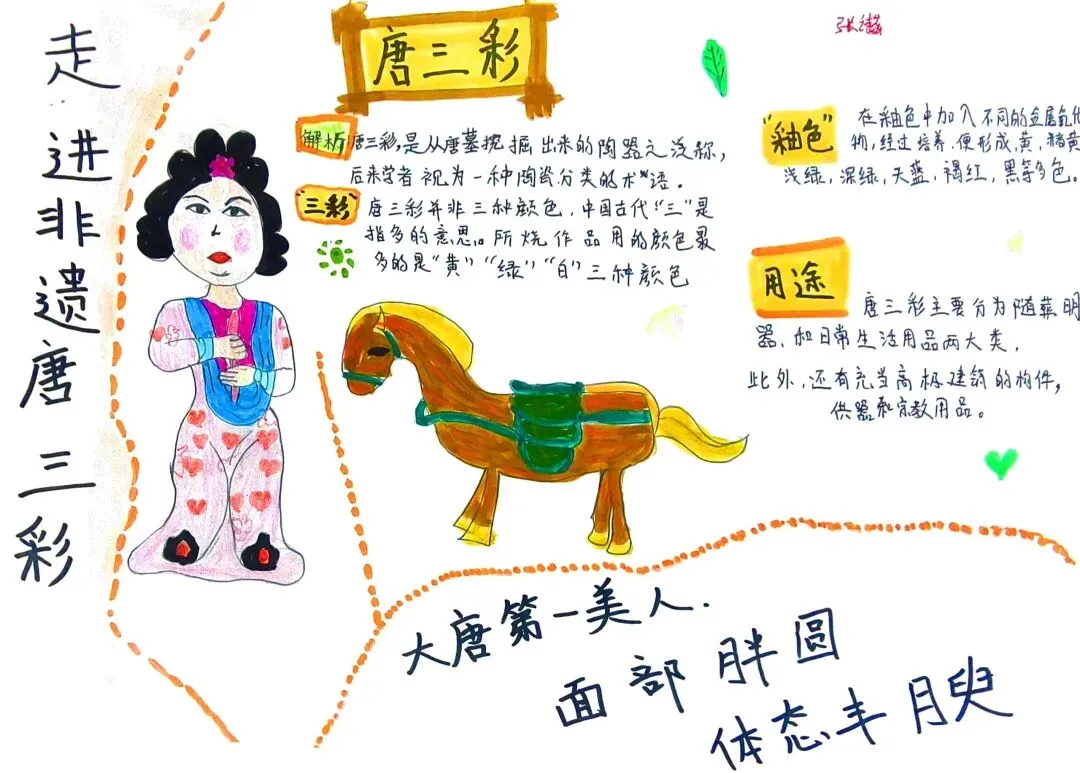 走进非遗唐三彩
唐三彩
解析 唐三彩,是从唐墓挖掘出来的陶器之泛称,
后来学者视为一种陶瓷分类的术语。
"三彩" 唐三彩并非三种颜色.中国古代"三"是
指多的意思。所烧作品用的颜色最
多的是"黄""绿""白"三种颜色
"釉色" 在釉色中加入不同的金属氧化
物,经过培养.便形成,黄,赭黄
浅绿,深绿,天蓝,褐红,黑等多色.
用途
唐三彩主要分为随葬明
器.和日常生活用品两大类.
此外.还有充当高极建筑的构件,
供器和宗教用品。
大唐第一美人.
面部胖圆
体态丰腴